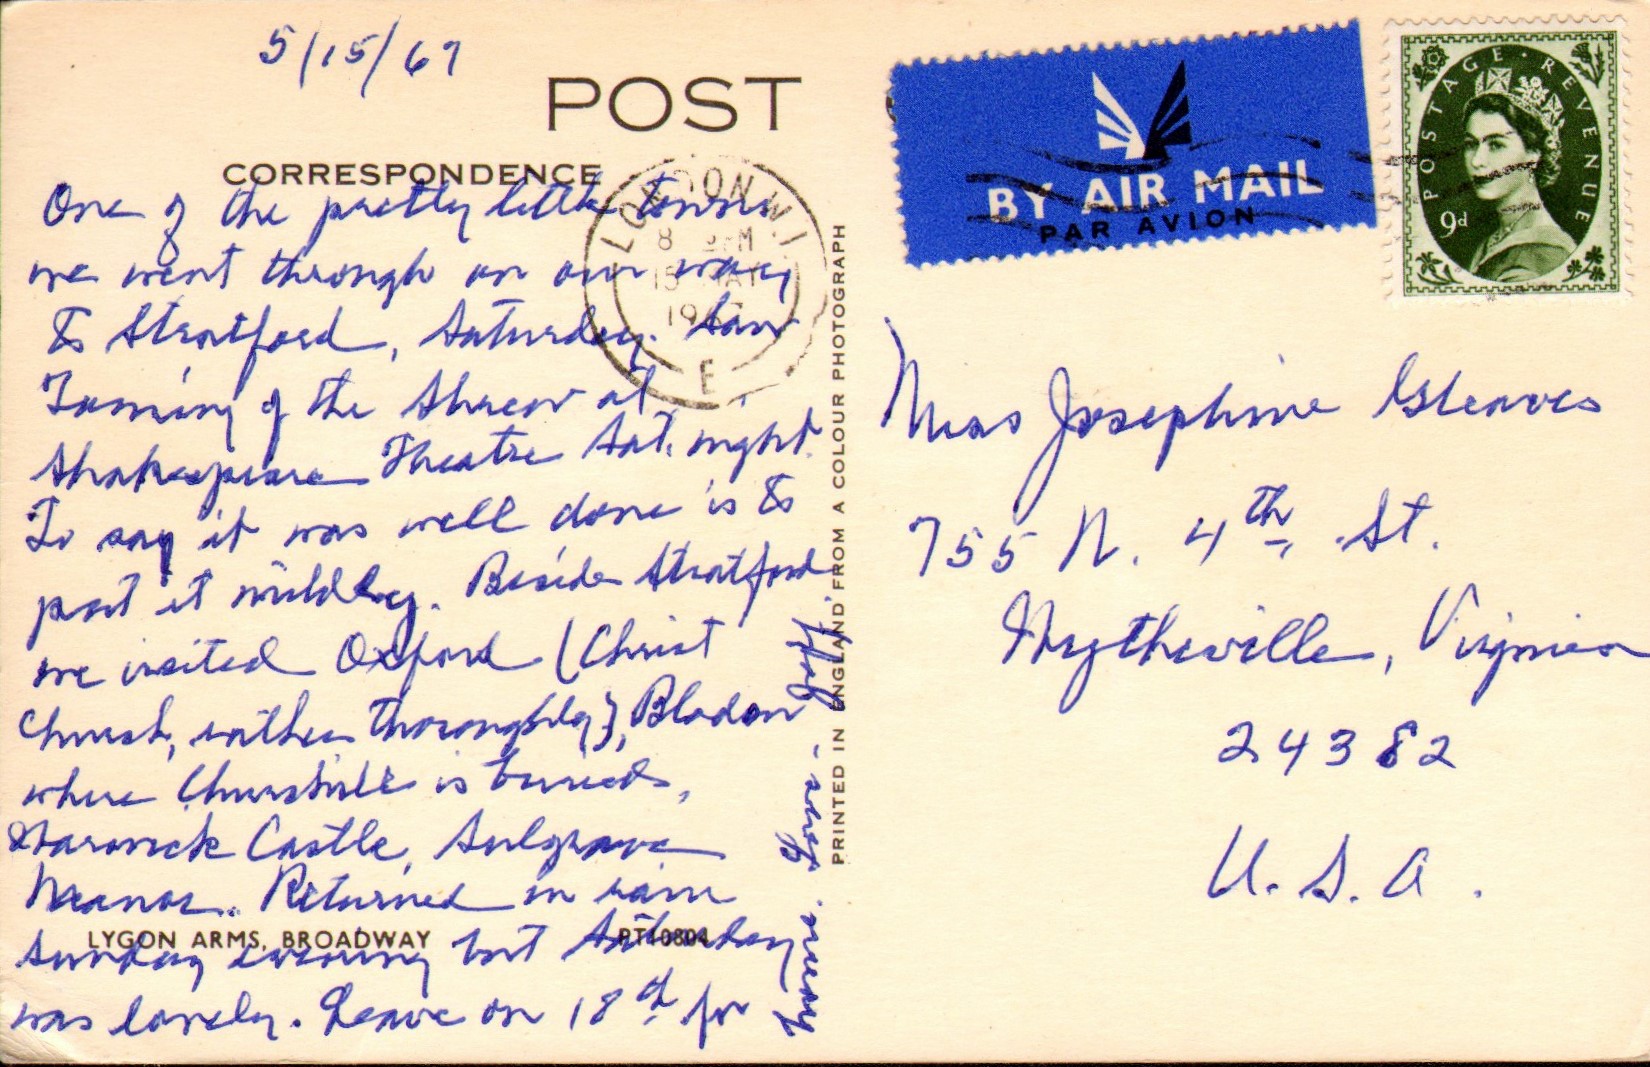 5/15/67
POST
CORRESPONDENCE
One of the pretty little towns
we went through on our way
to Stratford, Saturday. Saw
Taming of the Shrew at
Shakespeare Theatre Sat. night.
To say it was well done is to
put it mildly. Beside Stratford
we visited Oxford (Christ
Church, rather thoroughly), Bladon
where Churchill is buried,
Warwick Castle, Sulgrave
Manor. Returned in rain
Sunday evening but Saturday
was lovely. Leave on 18th for
LYGON ARMS, BROADWAY
PT10804
PRINTED IN ENGLAND FROM A COLOUR PHOTOGRAPH
LONDON. W.1
8 PM
15 MAY
1967
E
BY AIR MAIL
PAR AVION
POSTAGE REVENUE
9d
Miss Josephine Gleaves
755 N. 4th St.
Wytheville, Virginia
24382
U.S.A.